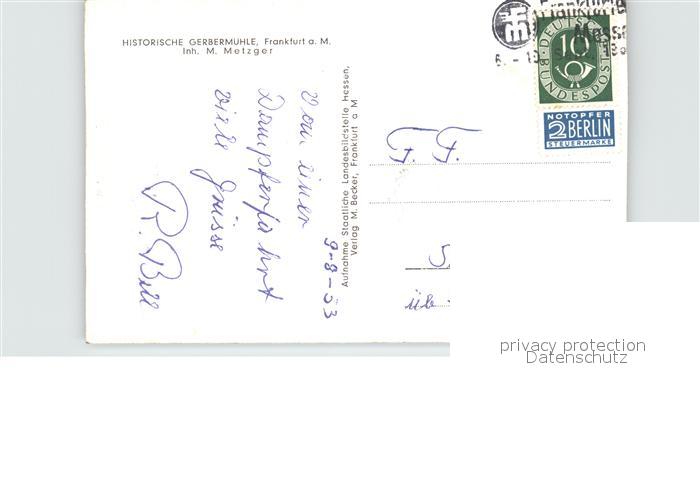 HISTORISCHE GERBERMÜHLE, Frankfurt a. M.
Inh. M. Metzger
9-8-53
Von einer
Dampferfahrt
viele Grüsse
R. Bill
Aufnahme Staatliche Landesbildstelle Hessen,
Verlag M. Becker, Frankfurt a M
Frankfurter
Messe
DEUTSCHE
BUNDESPOST
10
NOTOPFER
2 BERLIN
STEUERMARKE
üb
privacy protection
Datenschutz